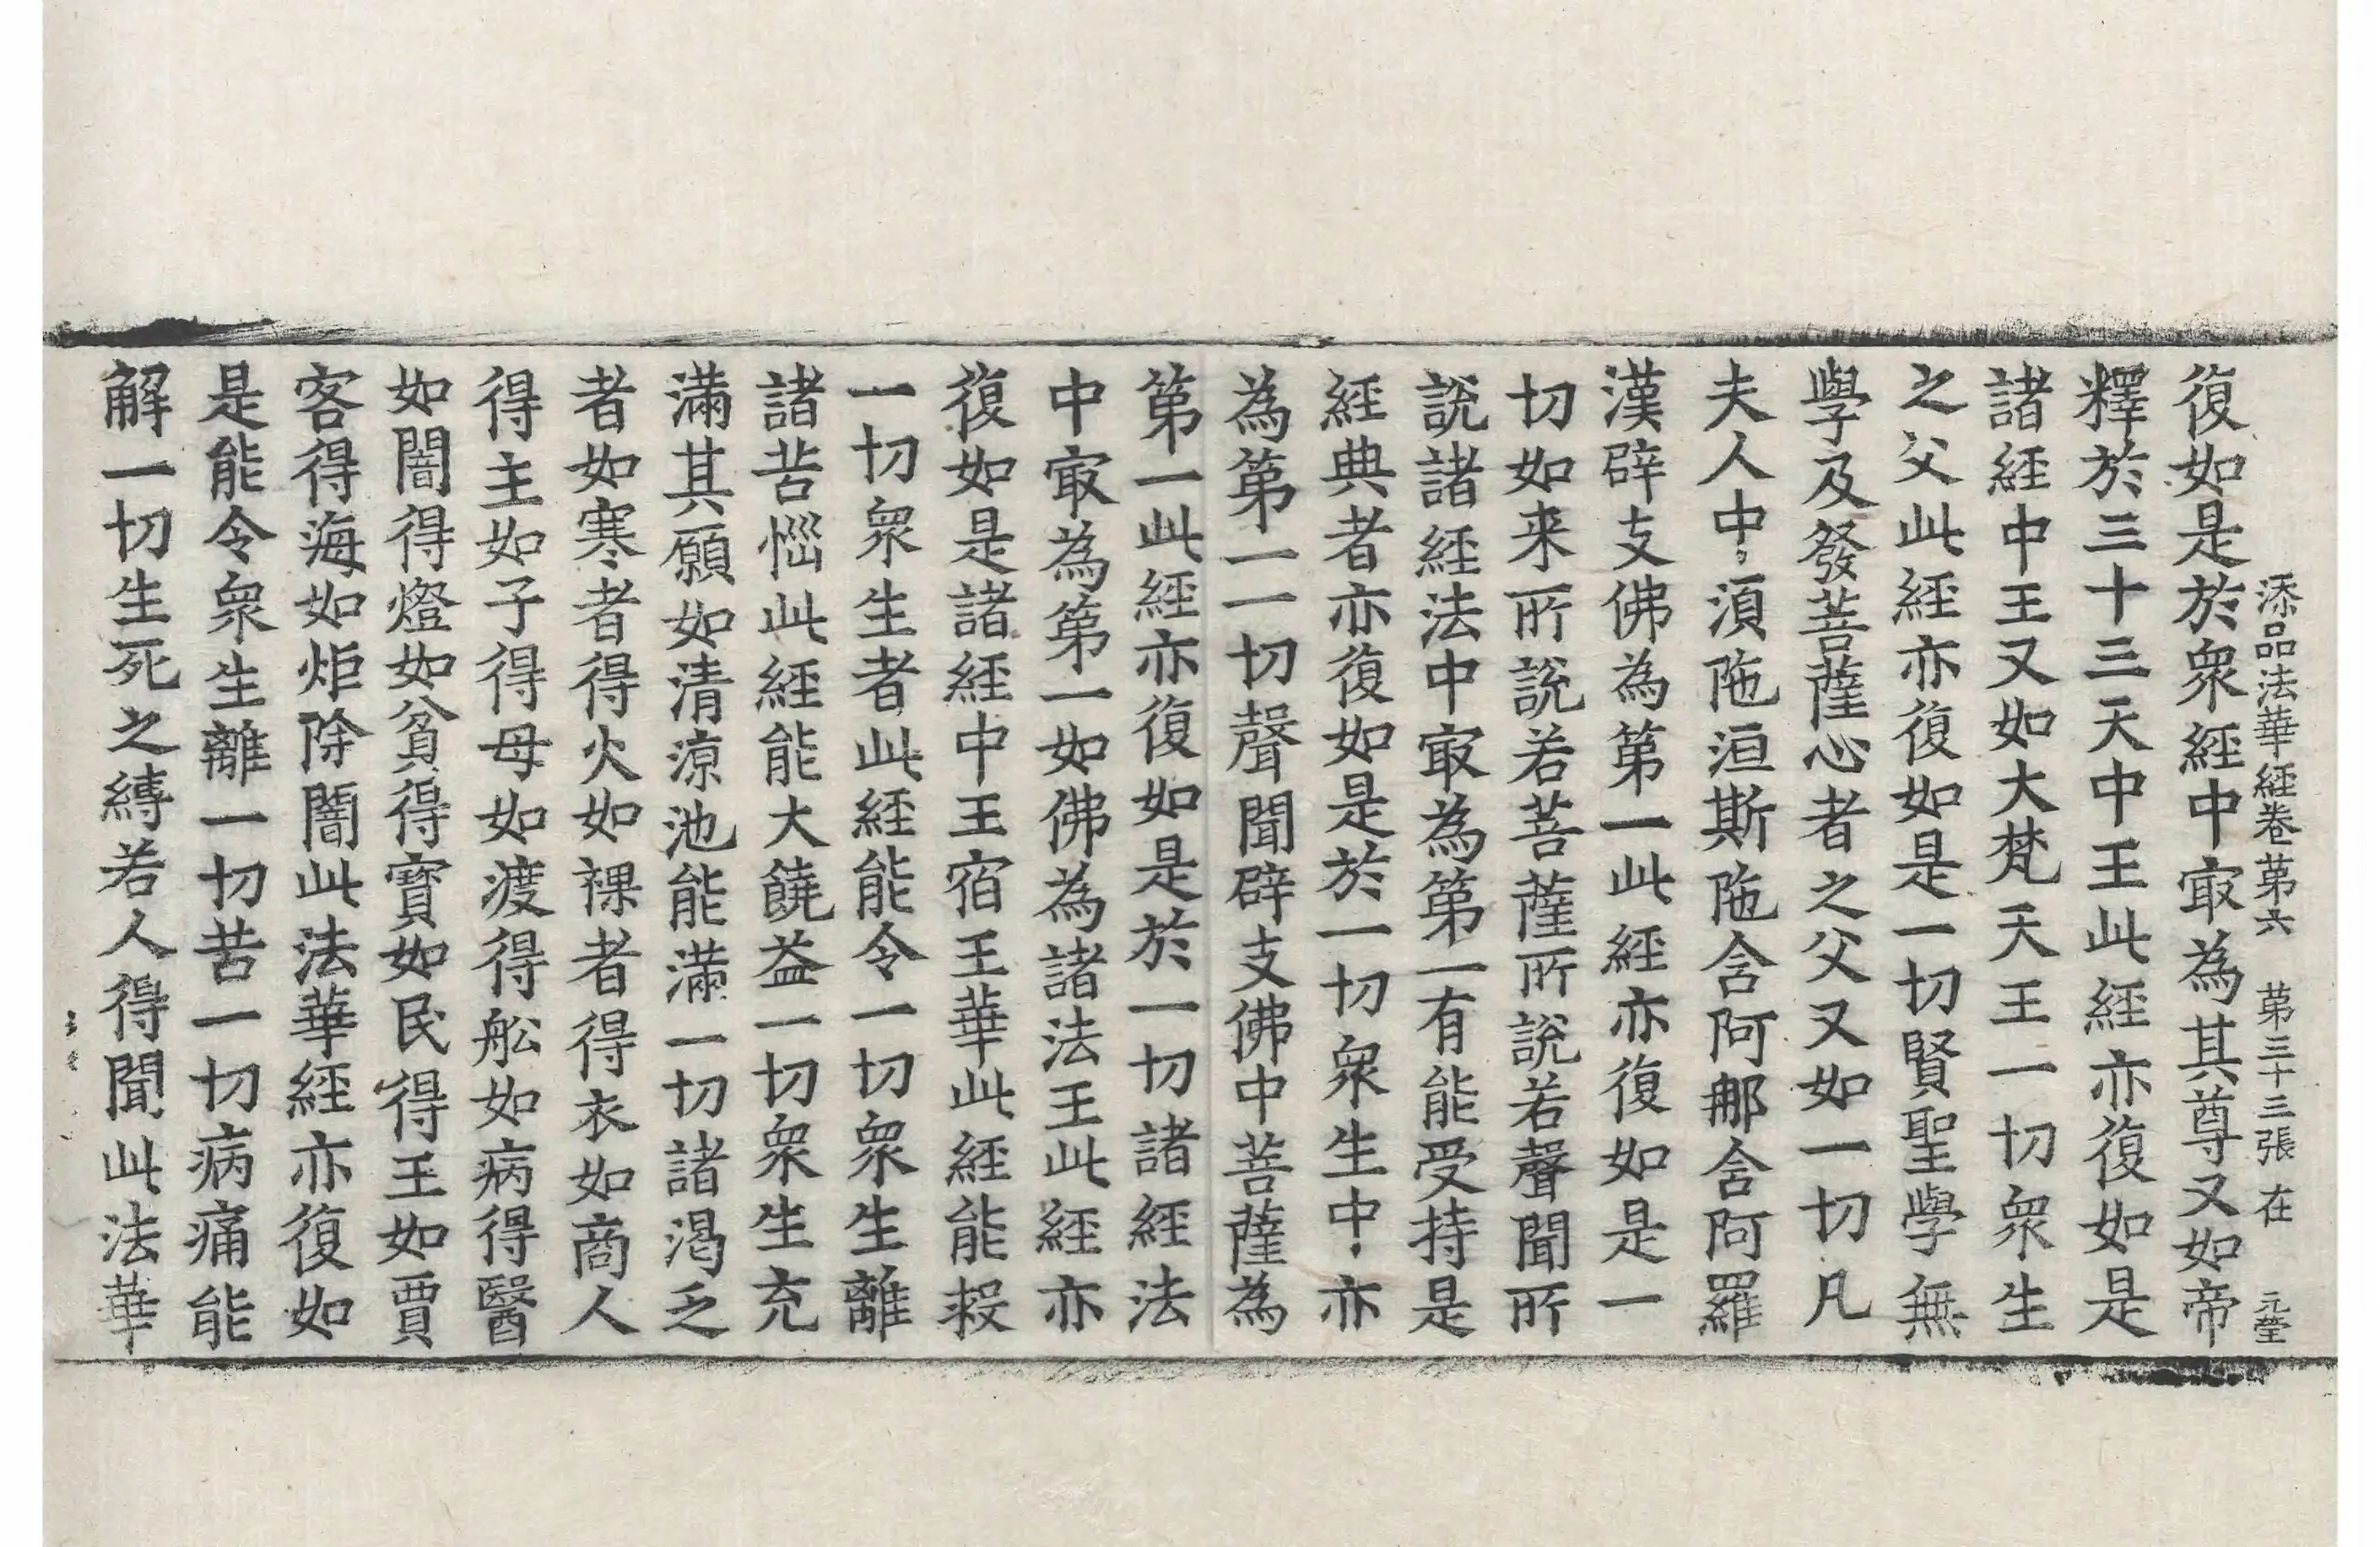 添品法華經卷第六 第三十三張 在
復如是於衆經中㝡為其尊又如帝
釋於三十三天中王此經亦復如是
諸經中王又如大梵天王一切衆生
之父此經亦復如是一切賢聖學無
學及發菩薩心者之父又如一切凡
夫人中須陁洹斯陁含阿那含阿羅
漢辟支佛為第一此經亦復如是一
切如来所說若菩薩所說若聲聞所
說諸經法中㝡為第一有能受持是
經典者亦復如是於一切衆生中亦
為第一一切聲聞辟支佛中菩薩為
第一此經亦復如是於一切諸經法
中㝡為第一如佛為諸法王此經亦
復如是諸經中王宿王華此經能救
一切衆生者此經能令一切衆生離
諸苦惱此經能大饒益一切衆生充
滿其願如清涼池能滿一切諸渴乏
者如寒者得火如裸者得衣如商人
得主如子得母如渡得舩如病得醫
如闇得燈如貧得寶如民得王如賈
客得海如炬除闇此法華經亦復如
是能令衆生離一切苦一切病痛能
解一切生死之縛若人得聞此法華